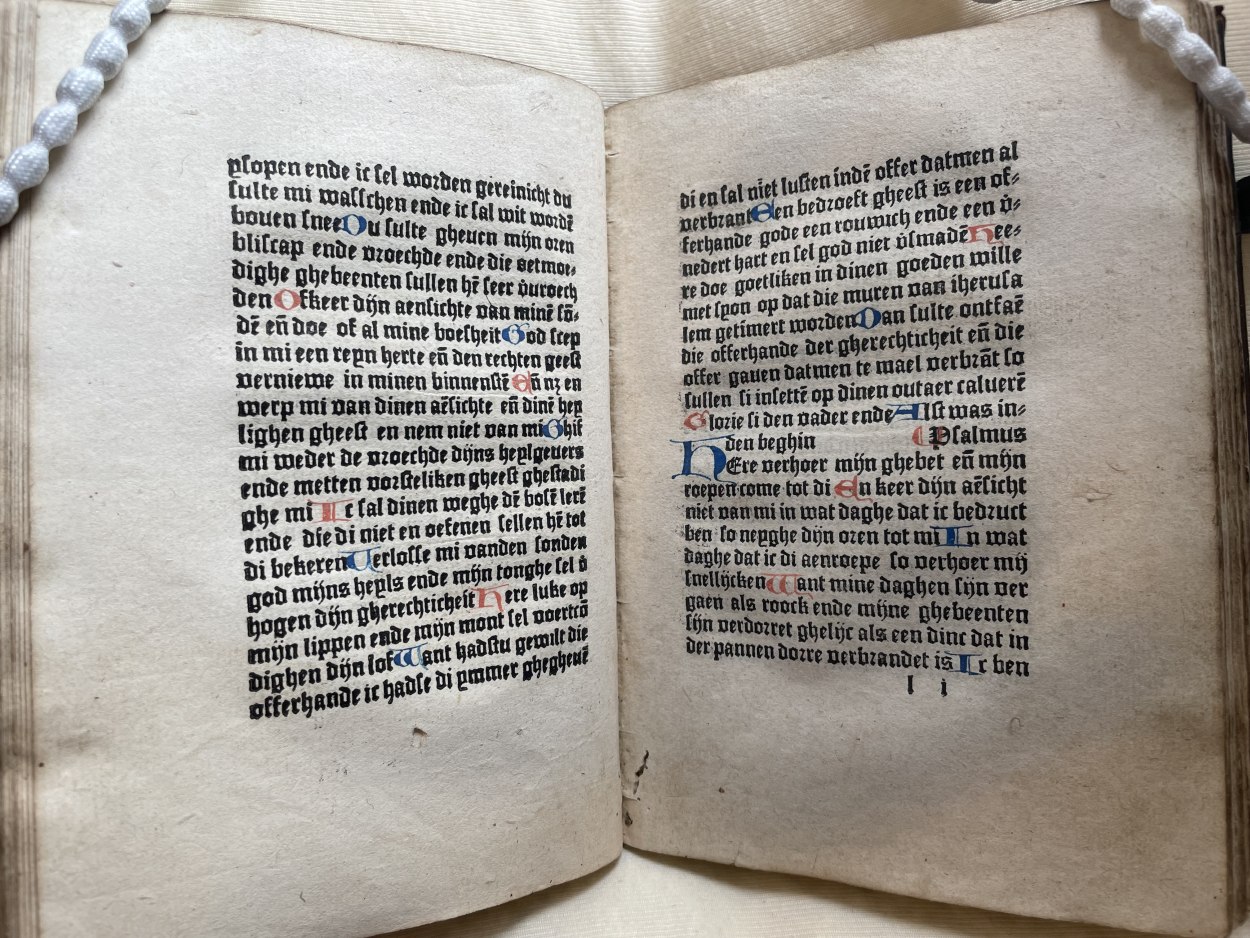 ysopen ende ic sel worden gereinicht du
sulte mi wasschen ende ic sal wit wordē
bouen snee Du sulte gheuen mijn oren
bliscap ende vroechde ende die oetmoe⸗
dighe ghebeenten sullen hē seer v̄uroech
den Ofkeer dijn aensichte van minē sō⸗
dē en̄ doe of al mine boesheit God scep
in mi een reyn herte en̄ den rechten geest
verniewe in minen binnenstē En̄ nz en
werp mi van dinen aēsichte en̄ dinē hey
lighen gheest en nem niet van mi Ghif
mi weder de vroechde dijns heylgeuers
ende metten vorsteliken gheest ghestadi
ghe mi Ic sal dinen weghe dē bosē lerē
ende die di niet en oefenen sellen hē tot
di bekeren Verlosse mi vanden sonden
god mijns heyls ende mijn tonghe sel v̄
hogen dijn gherechticheit Here luke op
mijn lippen ende mijn mont sel voertcō
dighen dijn lof Want hadstu gewilt die
offerhande ic hadse di ymmer ghegheuē
di en sal niet lusten indē offer datmen al
verbrant Een bedroeft gheest is een of⸗
ferhande gode een rouwich ende een v̄⸗
nedert hart en sel god niet v̄smadē Hee⸗
re doe goetliken in dinen goeden wille
met syon op dat die muren van iherusa
lem getimert worden Dan sulte ontfaē
die offerhande der gherechticheit en̄ die
offer gauen datmen te mael verbrāt so
sullen si insettē op dinen outaer caluerē
Glorie si den vader ende Alst was in⸗
den beghin Psalmus
HEre verhoer mijn ghebet en̄ mijn
roepen come tot di En keer dijn aēsicht
niet van mi in wat daghe dat ic bedruct
ben so neyghe dijn oren tot mi In wat
daghe dat ic di aenroepe so verhoer mij
snellijcken Want mine daghen sijn ver
gaen als roock ende mijne ghebeenten
sijn verdorret ghelijc als een dinc dat in
der pannen dorre verbrandet is Ic ben
l i